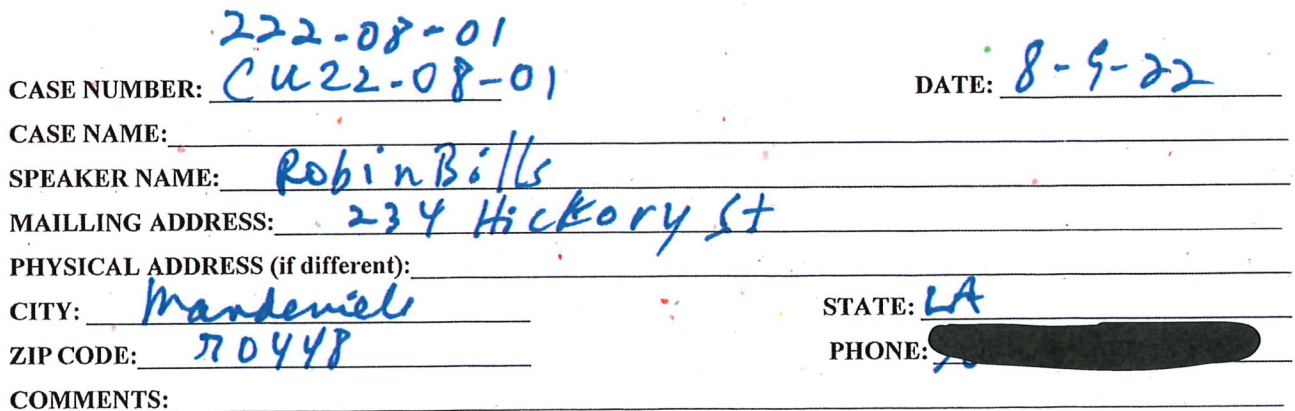 222-08-01
CASE NUMBER: CU22-08-01 DATE: 8-9-22
CASE NAME:
SPEAKER NAME: Robin Bills
MAILLING ADDRESS: 234 Hickory St
PHYSICAL ADDRESS (if different):
CITY: Mandeville STATE: LA
ZIP CODE: 70448 PHONE:
COMMENTS: